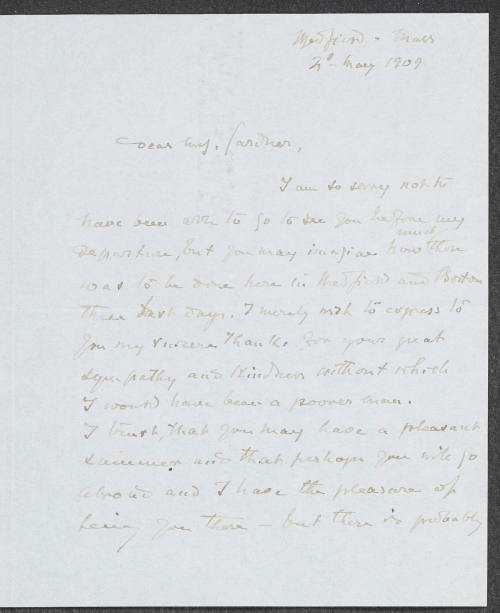 Medford - Mass
2d May 1909
Dear Mrs. Gardner,
I am so sorry not to
have been able to go to see you before my
departure, but you may imagine how much there
was to be done here in Medford and Boston
these last days. I merely wish to express to
you my sincere thanks for your great
sympathy and kindness without which
I would have been a poorer man.
I trust, that you may have a pleasant
summer and that perhaps you will go
abroad and I have the pleasure of
seeing you there — but there is probably